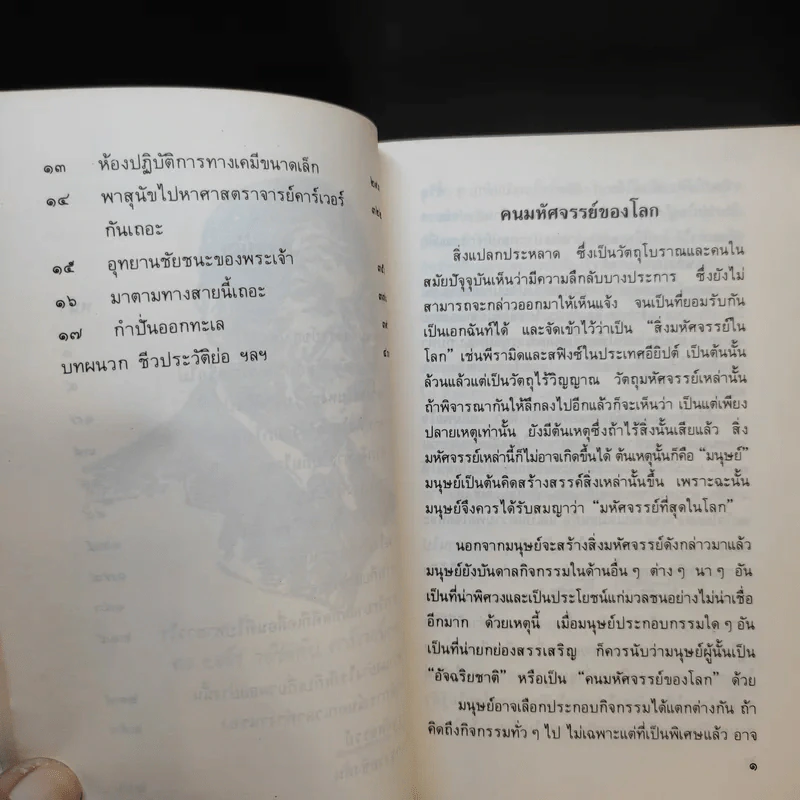 ๑๓ ห้องปฏิบัติการทางเคมีขนาดเล็ก
๑๔ พาสุนัขไปหาศาสตราจารย์คาร์เวอร์
กันเถอะ
๑๕ อุทยานชัยชนะของพระเจ้า
๑๖ มาตามทางสายนี้เถอะ
๑๗ กำปั่นออกทะเล
บทผนวก ชีวประวัติย่อ ฯลฯ
คนมหัศจรรย์ของโลก
สิ่งแปลกประหลาด ซึ่งเป็นวัตถุโบราณและคนใน
สมัยปัจจุบันเห็นว่ามีความลึกลับบางประการ ซึ่งยังไม่
สามารถจะกล่าวออกมาให้เห็นแจ้ง จนเป็นที่ยอมรับกัน
เป็นเอกฉันท์ได้ และจัดเข้าไว้ว่าเป็น “สิ่งมหัศจรรย์ใน
โลก” เช่นพีรามิดและสฟิงซ์ในประเทศอียิปต์ เป็นต้นนั้น
ล้วนแล้วแต่เป็นวัตถุไร้วิญญาณ วัตถุมหัศจรรย์เหล่านั้น
ถ้าพิจารณากันให้ลึกลงไปอีกแล้วก็จะเห็นว่า เป็นแต่เพียง
ปลายเหตุเท่านั้น ยังมีต้นเหตุซึ่งถ้าไร้สิ่งนั้นเสียแล้ว สิ่ง
มหัศจรรย์เหล่านี้ก็ไม่อาจเกิดขึ้นได้ ต้นเหตุนั้นก็คือ “มนุษย์”
มนุษย์เป็นต้นคิดสร้างสรรค์สิ่งเหล่านั้นขึ้น เพราะฉะนั้น
มนุษย์จึงควรได้รับสมญาว่า “มหัศจรรย์ที่สุดในโลก”
นอกจากมนุษย์จะสร้างสิ่งมหัศจรรย์ดังกล่าวมาแล้ว
มนุษย์ยังบันดาลกิจกรรมในด้านอื่น ๆ ต่าง ๆ นา ๆ อัน
เป็นที่น่าพิศวงและเป็นประโยชน์แก่มวลชนอย่างไม่น่าเชื่อ
อีกมาก ด้วยเหตุนี้ เมื่อมนุษย์ประกอบกรรมใด ๆ อัน
เป็นที่น่ายกย่องสรรเสริญ ก็ควรนับว่ามนุษย์ผู้นั้นเป็น
“อัจฉริยชาติ” หรือเป็น “คนมหัศจรรย์ของโลก” ด้วย
มนุษย์อาจเลือกประกอบกิจกรรมได้แตกต่างกัน ถ้า
คิดถึงกิจกรรมทั่ว ๆ ไป ไม่เฉพาะแต่ที่เป็นพิเศษแล้ว อาจ
๑